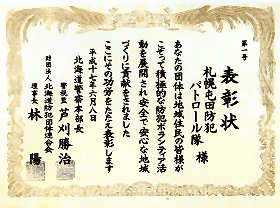 第一号
表彰状
札幌屯田防犯
パトロール隊 様
あなたの団体は地域住民の皆様が
こぞって積極的な防犯ボランティア活
動を展開され安全で安心な地域
づくりに貢献をされました
ここにその功労をたたえ表彰します
平成十七年六月八日
北海道警察本部長
警視監 芦刈勝治
財団法人 北海道防犯団体連合会
理事長 林 陽